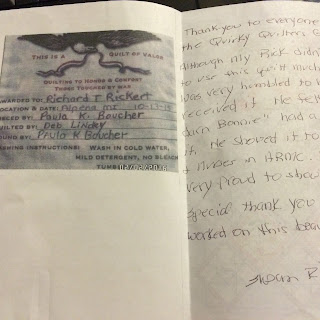 THIS IS A QUILT OF VALOR
QUILTING TO HONOR & COMFORT
THOSE TOUCHED BY WAR
AWARDED TO: Richard T Rickert
LOCATION & DATE: Alpena MI 10-13-15
PIECED BY: Paula K. Boucher
QUILTED BY: Deb Lindsy
BOUND BY: Paula K Boucher
WASHING INSTRUCTIONS: WASH IN COLD WATER,
MILD DETERGENT, NO BLEACH
TUMBLE
Thank you to everyone
the Quirky Quilters G
Although my Rick didn't
to use this quilt much
was very humbled to
received it. He felt
darn Bonnie' had a
it. He showed it to
& nurses in ARMC.
very proud to show
special thank you
worked on this beau
Susan R